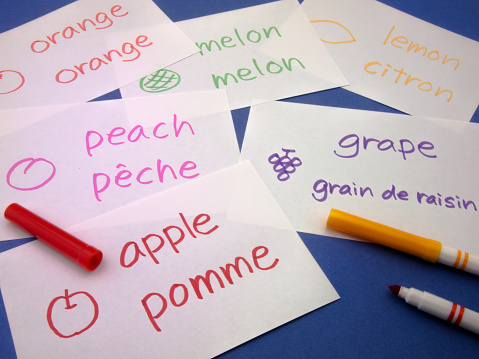 orange
orange
melon
melon
lemon
citron
peach
pêche
grape
grain de raisin
apple
pomme